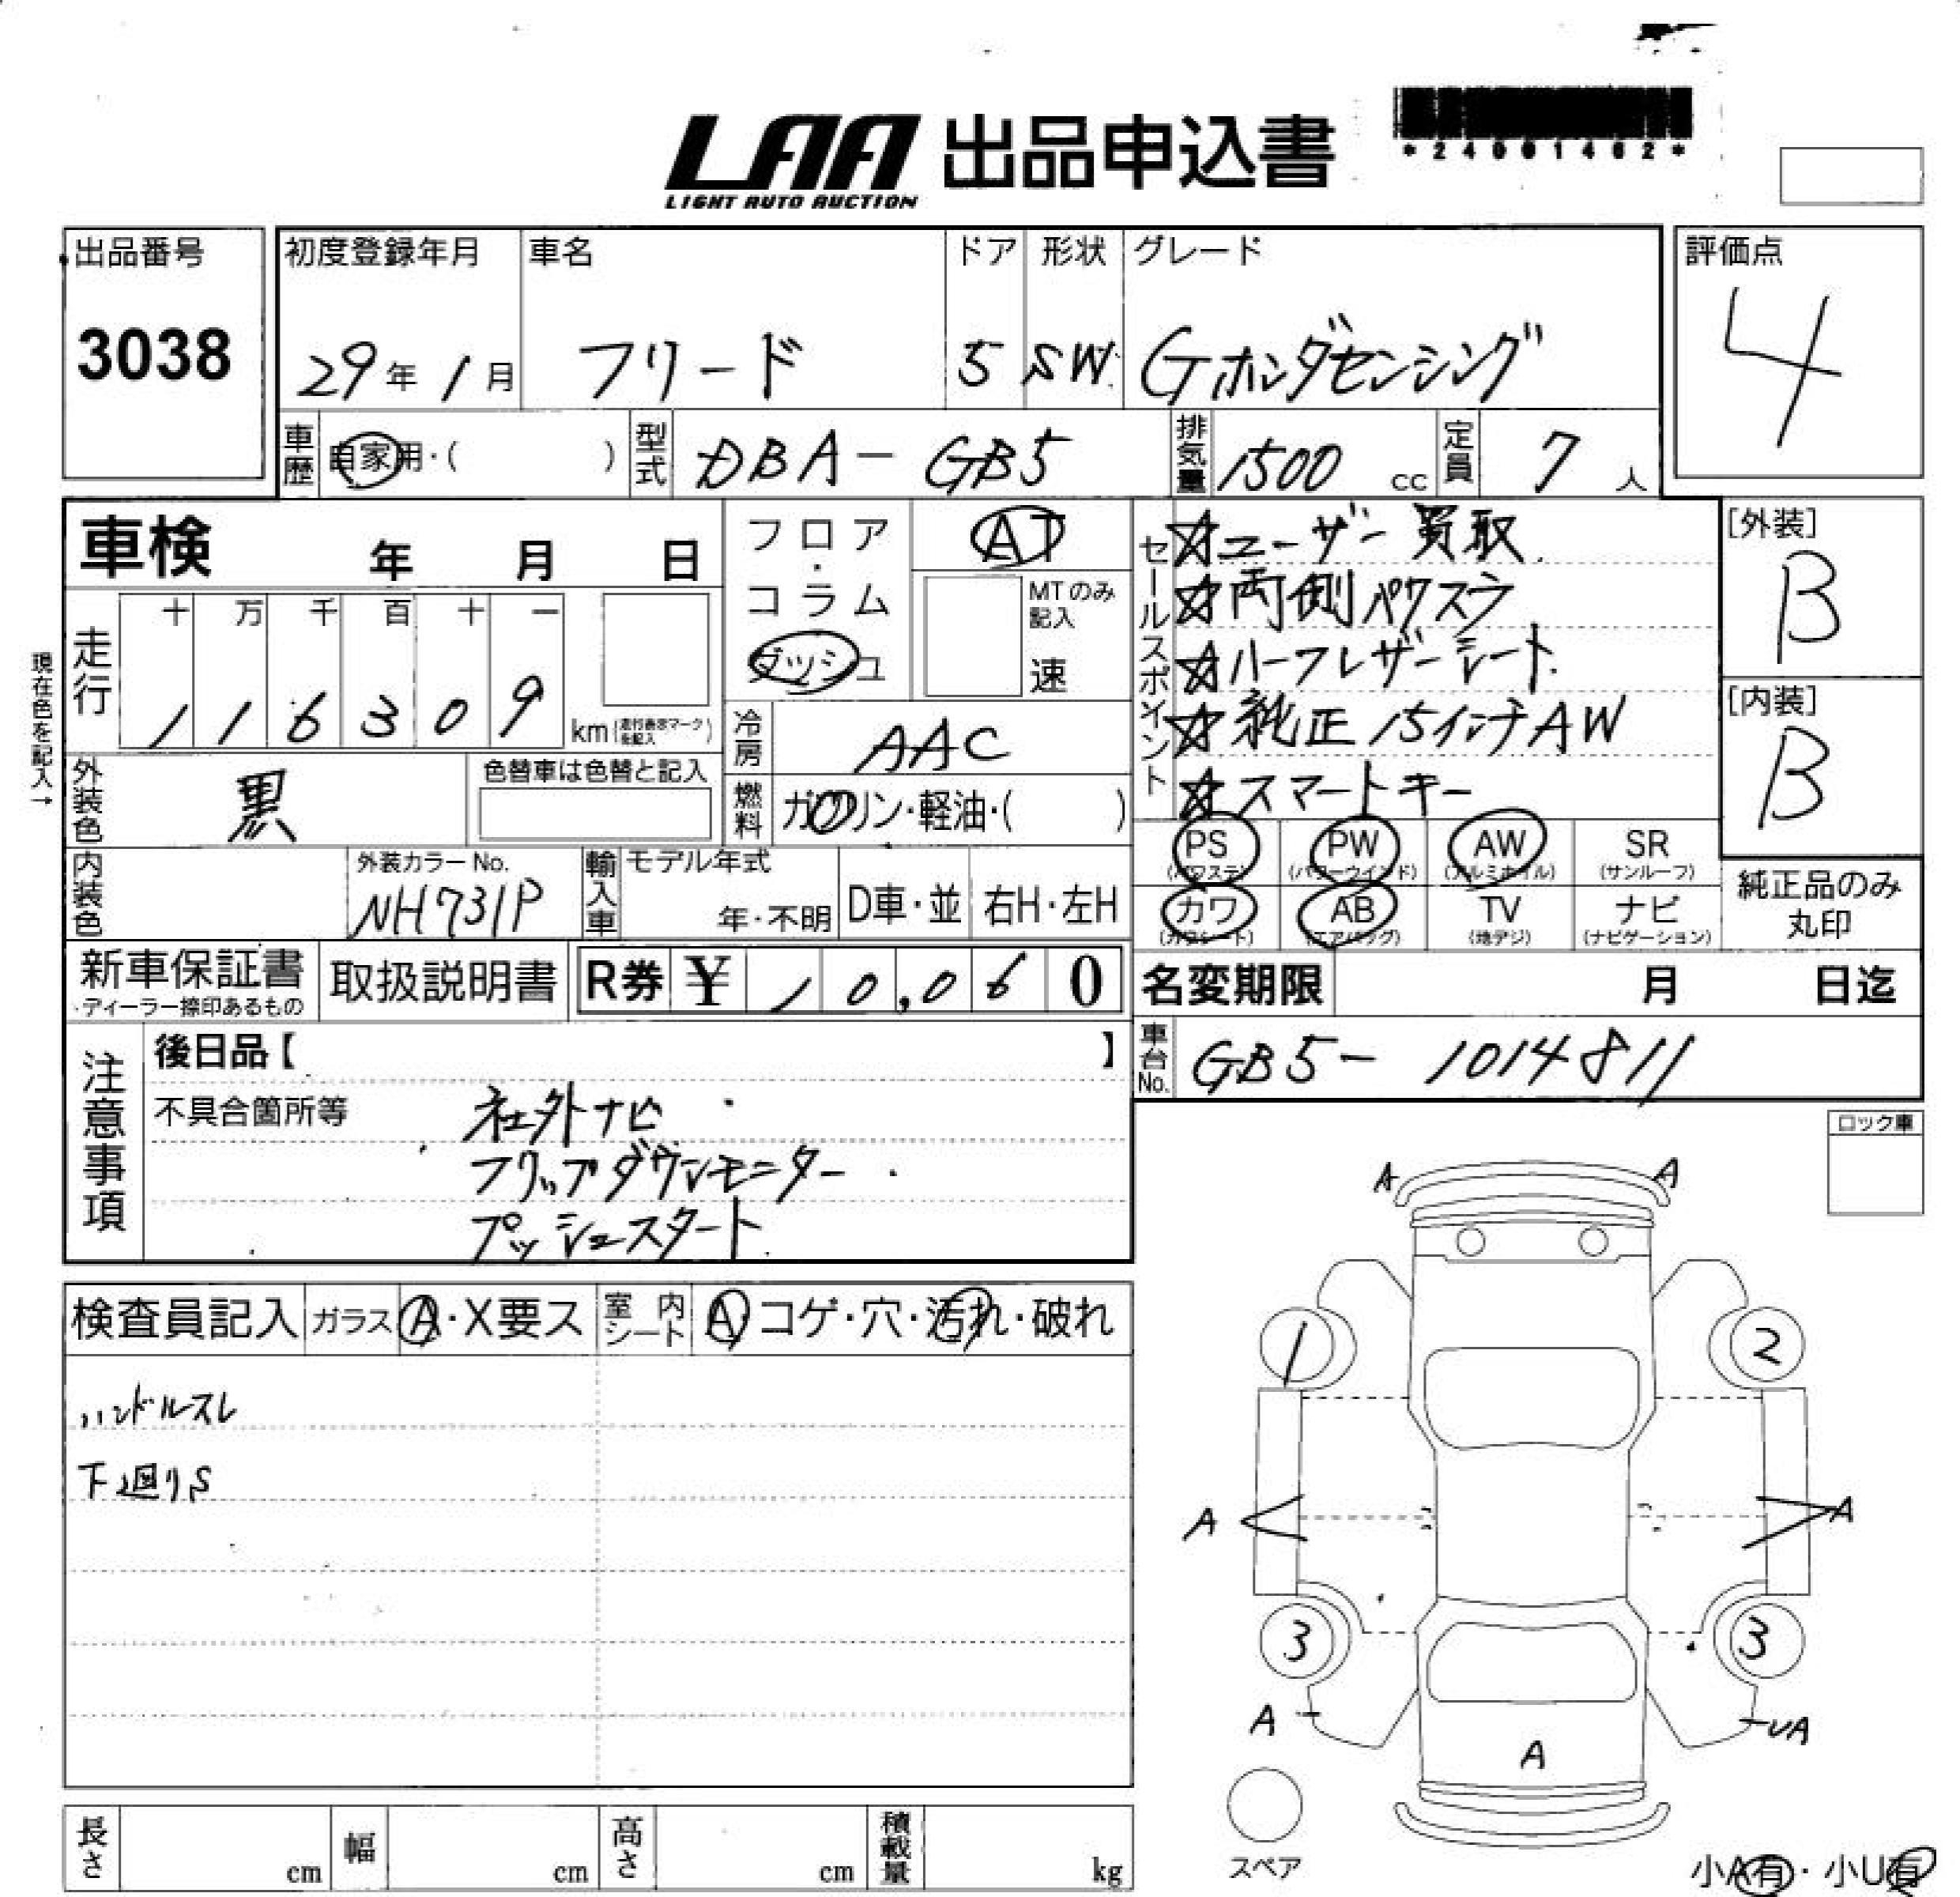 LAA 出品申込書
LIGHT AUTO AUCTION
*24001462*
出品番号
3038
初度登録年月
29年 1月
車名
フリード
ドア
5
形状
SW
グレード
Gホンダセンシング
評価点
4
車歴
自家用・( )
型式
DBA-GB5
排気量
1500 cc
定員
7 人
車検 年 月 日
フロア・コラム
ダッシュ
AT
MTのみ記入
速
現在色を記入→
走行
十 万 千 百 十 一
1 1 6 3 0 9
km (走行表示マーク を記入)
冷房
AAC
外装色
黒
色替車は色替と記入
燃料
ガソリン・軽油・( )
セールスポイント
☆ユーザー買取
☆両側パワスラ
☆ハーフレザーシート
☆純正15インチAW
☆スマートキー
[外装]
B
[内装]
B
PS (パワステ)
PW (パワーウインド)
AW (アルミホイル)
SR (サンルーフ)
カワ (カワシート)
AB (エアバッグ)
TV (地デジ)
ナビ (ナビゲーション)
純正品のみ丸印
内装色
外装カラーNo.
NH731P
輸入車
モデル年式
年・不明
D車・並
右H・左H
新車保証書
・ディーラー捺印あるもの
取扱説明書
R券 ¥ 10,060
名変期限 月 日迄
車台No.
GB5-1014811
注意事項
後日品【 】
不具合箇所等
社外ナビ
フリップダウンモニター
プッシュスタート
ロック車
検査員記入
ガラス A・X要ス
室内シート A・コゲ・穴・汚れ・破れ
ハンドルスレ
下廻りS
A A
1 2
A A
3 3
A UA
A
スペア
小A有・小U有
長さ cm
幅 cm
高さ cm
積載量 kg